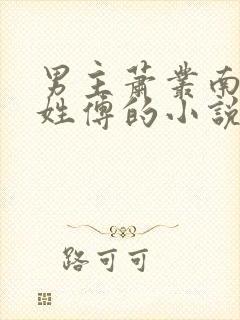 男主萧業南
姓傅的小說
路可可